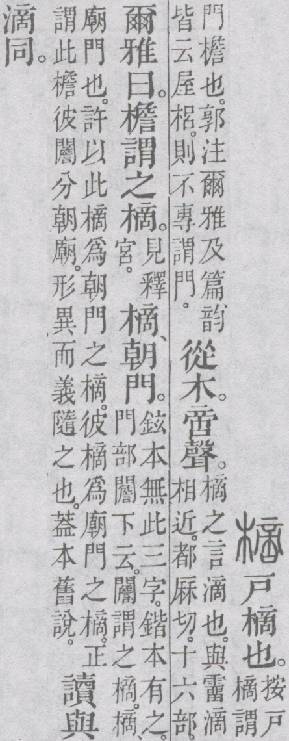 樀戶樀也。按戶樀謂
門檐也。郭注爾雅及篇韵皆云屋梠。則不專謂門。從木。啻聲。樀之言滴也。與霤滴相近。都厤切。十六部。
爾雅曰。檐謂之樀。見釋宮。樀、朝門。鉉本無此三字。鍇本有之。門部闒下云。闒謂之樀。樀、
廟門也。許以此樀爲朝門之樀。彼樀爲廟門之樀。正謂此檐彼闒分朝廟。形異而義隨之也。葢本舊說。讀與
滴同。